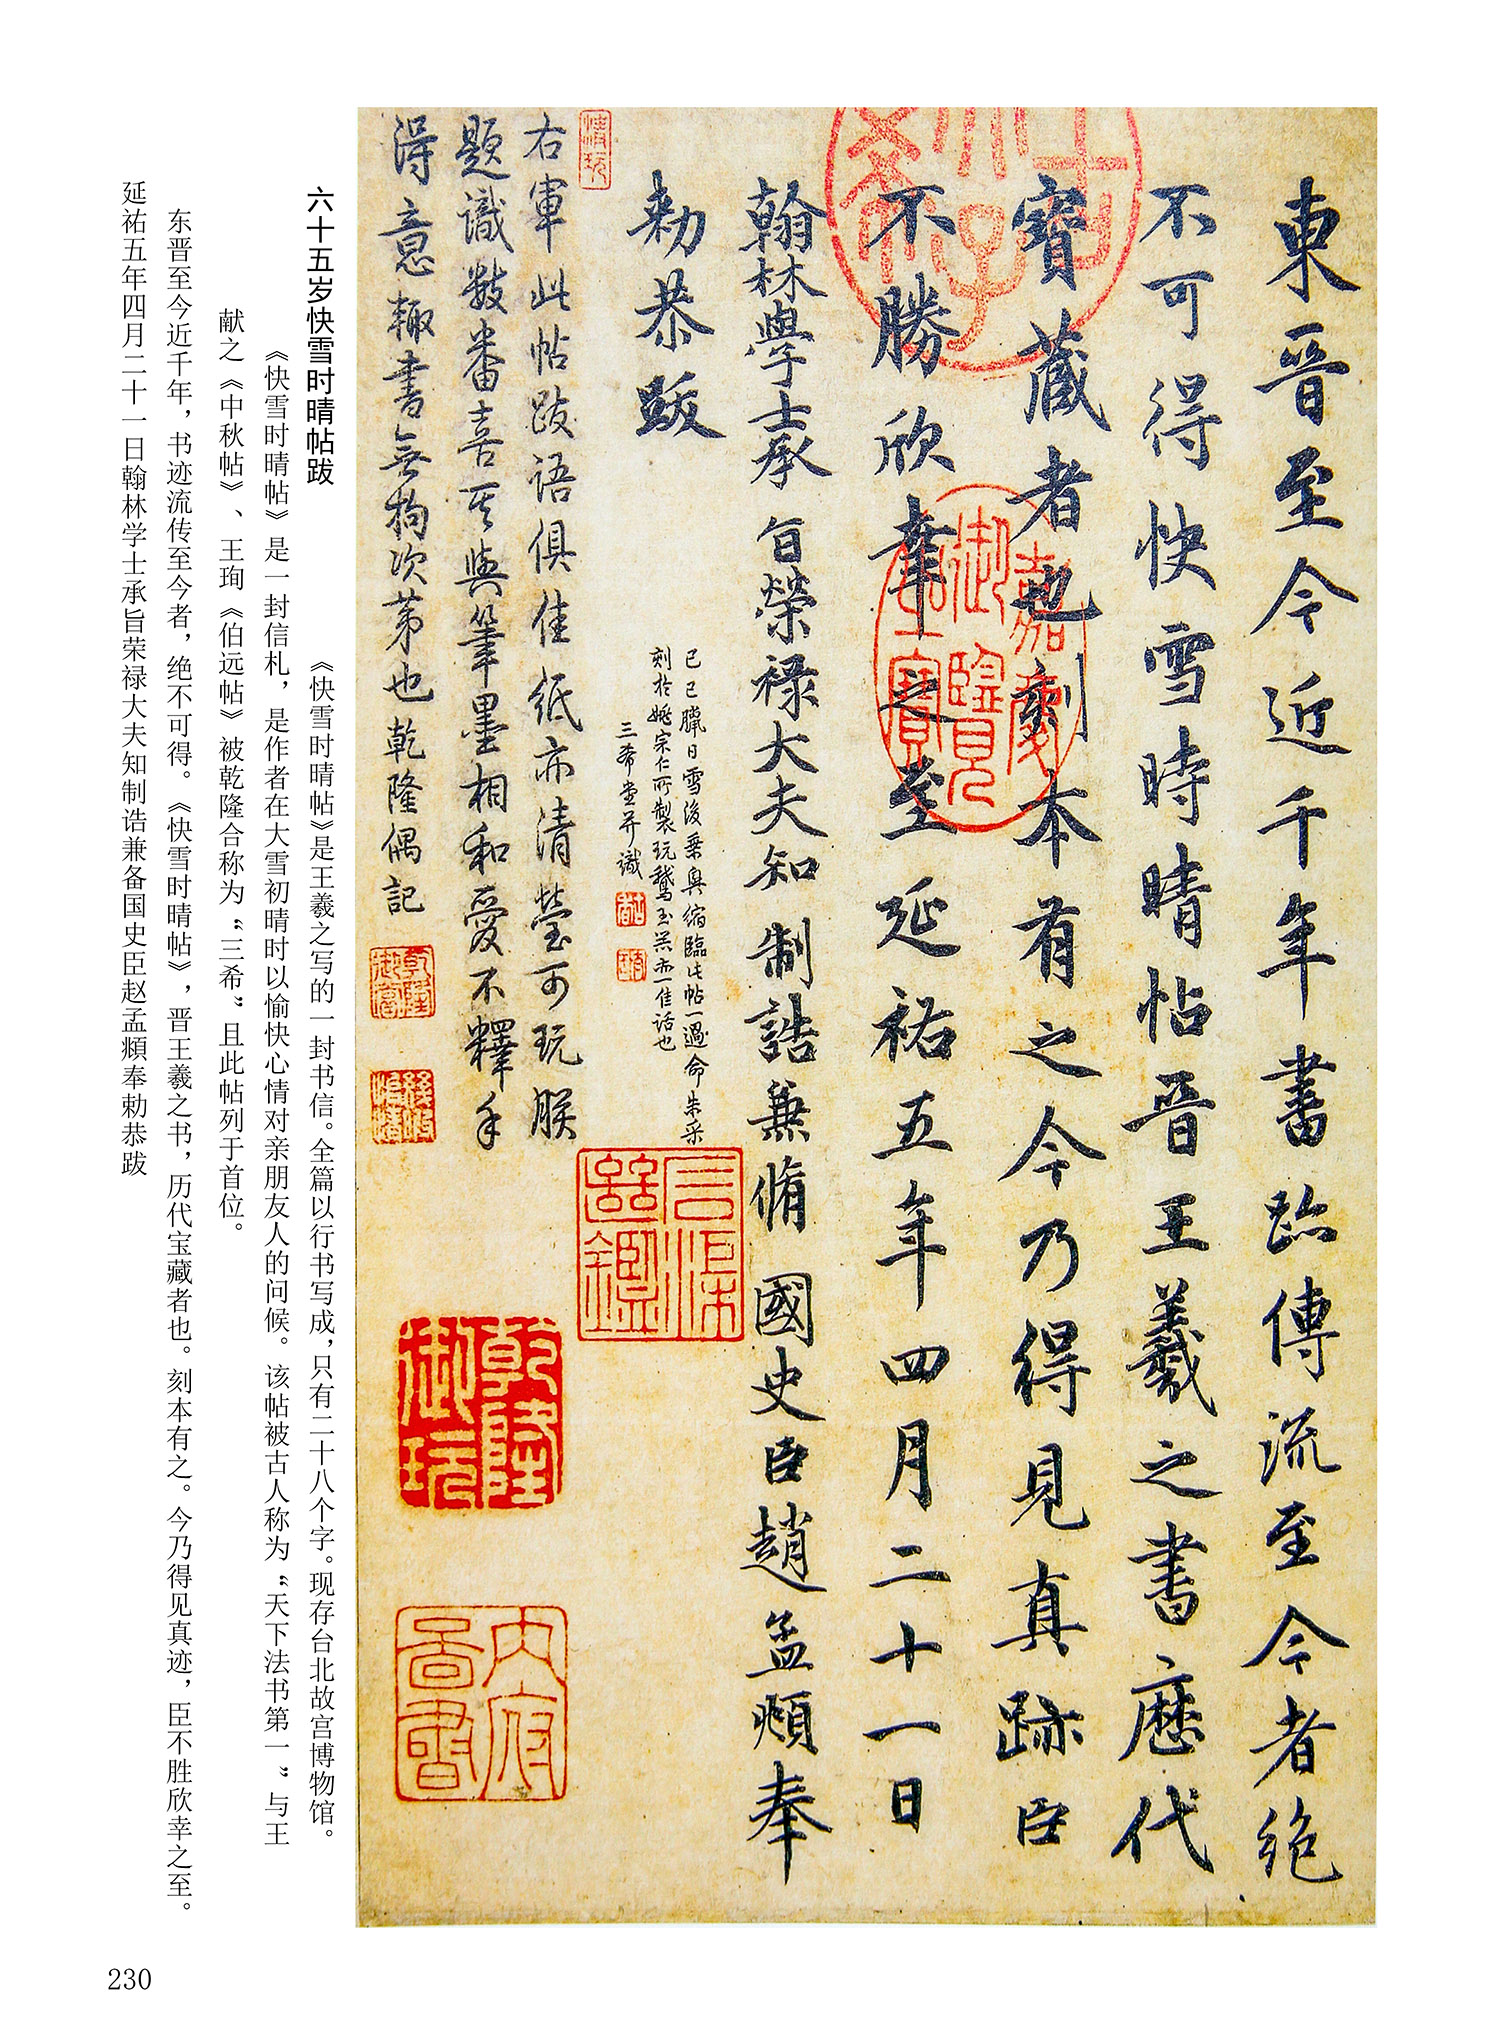 東晉至今近千年書跡傳流至今者絶
不可得快雪時晴帖晉王羲之書歷代
寶藏者也刻本有之今乃得見真跡臣
不勝欣幸之至延祐五年四月二十一日
翰林學士承旨榮祿大夫知制誥兼脩國史臣趙孟頫奉
勑恭跋
己巳臘日雪後乘輿縮臨此帖一過命朱采
刻於姚宗仁所製玩鵝玉器亦一佳話也
三希堂并識
右軍此帖跋語俱佳紙亦清瑩可玩朕
題識數番喜其與筆墨相和愛不釋手
得意輒書無拘次第也乾隆偶記
嘉慶
御覽
之寶
乾隆
御玩
內府
圖書
乾隆
御賞
六十五岁快雪时晴帖跋
《快雪时晴帖》是王羲之写的一封书信。全篇以行书写成，只有二十八个字。现存台北故宫博物馆。
《快雪时晴帖》是一封信札，是作者在大雪初晴时以愉快心情对亲朋友人的问候。该帖被古人称为“天下法书第一”与王
献之《中秋帖》、王珣《伯远帖》被乾隆合称为“三希”且此帖列于首位。
东晋至今近千年，书迹流传至今者，绝不可得。《快雪时晴帖》，晋王羲之书，历代宝藏者也。刻本有之。今乃得见真迹，臣不胜欣幸之至。
延祐五年四月二十一日翰林学士承旨荣禄大夫知制诰兼备国史臣赵孟頫奉勅恭跋
230